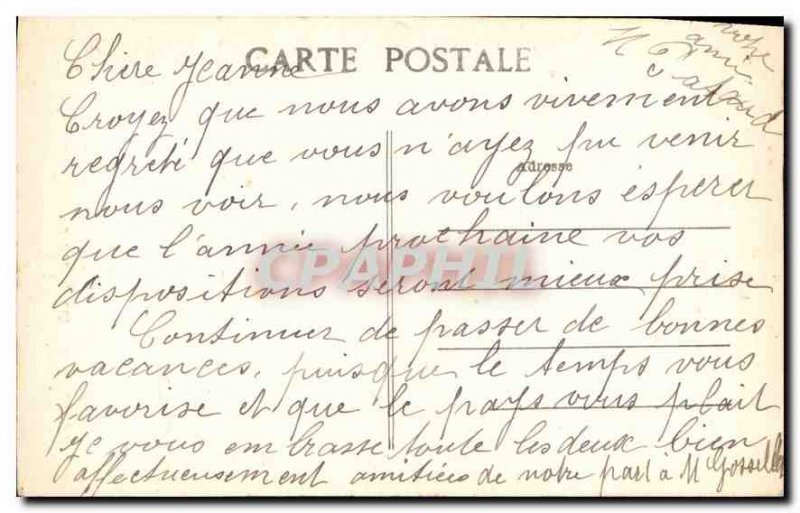 CARTE POSTALE
Chère Jeanne
Croyez que nous avons vivement
regreté que vous n'ayez pu venir
Adresse
nous voir, nous voulons espérer
que l'année prochaine vos
CPAPHIL
dispositions seront mieux prise
Continuer de passer de bonnes
vacances, puisque le temps vous
favorise et que le pays vous plait
je vous embrasse toute les deux bien
affectueusement amitiées de notre part à M
votre
amie